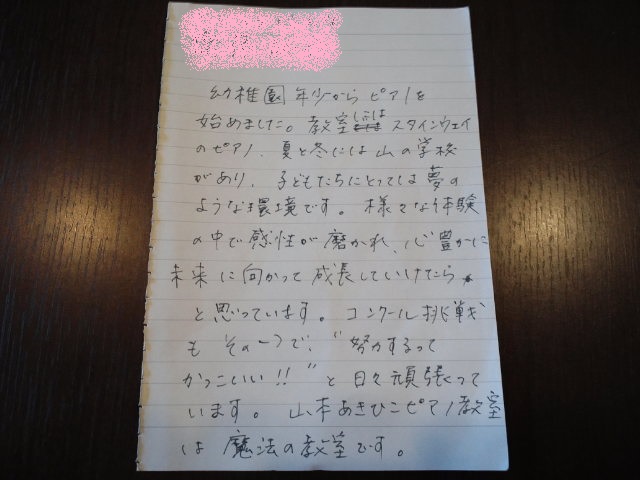 幼稚園年少からピアノを
始めました。教室にはスタインウェイ
のピアノ、夏と冬には山の学校
があり、子どもたちにとっては夢の
ような環境です。様々な体験
の中で感性が磨かれ、心豊かに
未来に向かって成長していけたら
と思っています。コンクール挑戦
もその一つで、"努力するって
かっこいい!!"と日々頑張って
います。山本あきひこピアノ教室
は魔法の教室です。